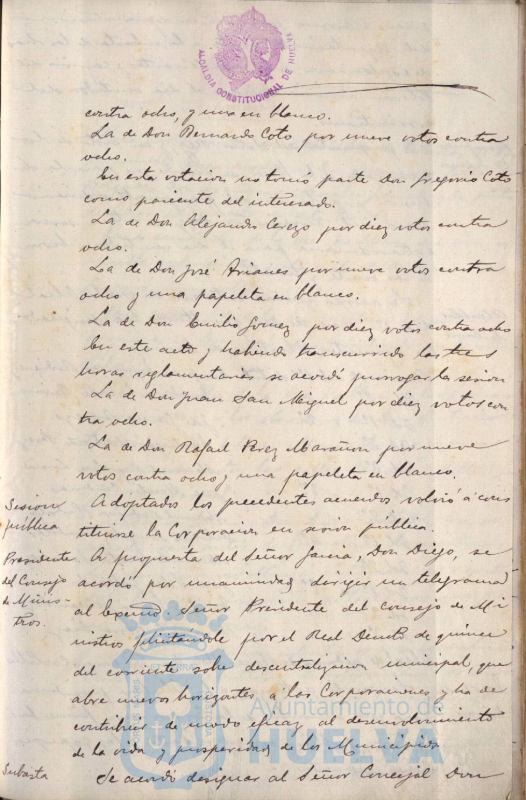 ALCALDIA CONSTITUCIONAL DE HUELVA
contra ocho, y una en blanco.
La de Don Bernardo Coto por nueve votos contra
ocho.
En esta votacion no tomó parte Don Gregorio Coto
como pariente del interesado.
La de Don Alejandro Cerezo por diez votos contra
ocho.
La de Don José Arianes por nueve votos contra
ocho y una papeleta en blanco.
La de Don Emilio Gomez por diez votos contra ocho
En este acto y habiendo transcurrido las tres
horas reglamentarias se acordó prorrogar la sesion
La de Don Juan San Miguel por diez votos con
tra ocho.
La de Don Rafael Perez Marañon por nueve
votos contra ocho y una papeleta en blanco.
Sesion
publica
Adoptados los precedentes acuerdos volvió á cons
tituirse la Corporacion en sesion pública.
Presidente
del Consejo
de Minis-
tros.
A propuesta del Señor Garcia, Don Diego, se
acordó por unanimidad dirigir un telegrama
al Excmo. Señor Presidente del consejo de Mi
nistros felicitándole por el Real Decreto de quince
del corriente sobre descentralizacion municipal, que
abre nuevos horizontes a las Corporaciones y ha de
contribuir de modo eficaz al desenvolvimiento
de la vida y prosperidad de los Municipios
Subasta
Se acordó designar al Señor Concejal Don
Ayuntamiento de
HUELVA